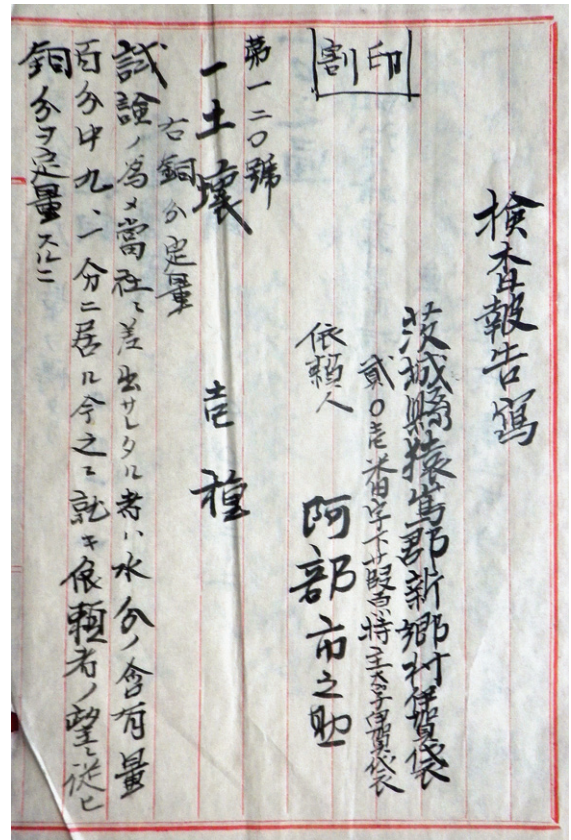 検査報告寫
茨城縣猿島郡新郷村伊賀袋
貳〇壱番字下 持主大字伊賀袋
依頼人 阿部市之助
割印
第一二〇號
一土壌 壱種
右銅分定量
試詮ノ為メ當社ニ差出サレタル者ハ水分ノ含有量
百分中九、一分ニ居ル今之ニ就キ依頼者ノ望ニ従ヒ
銅分ヲ定量スルニ